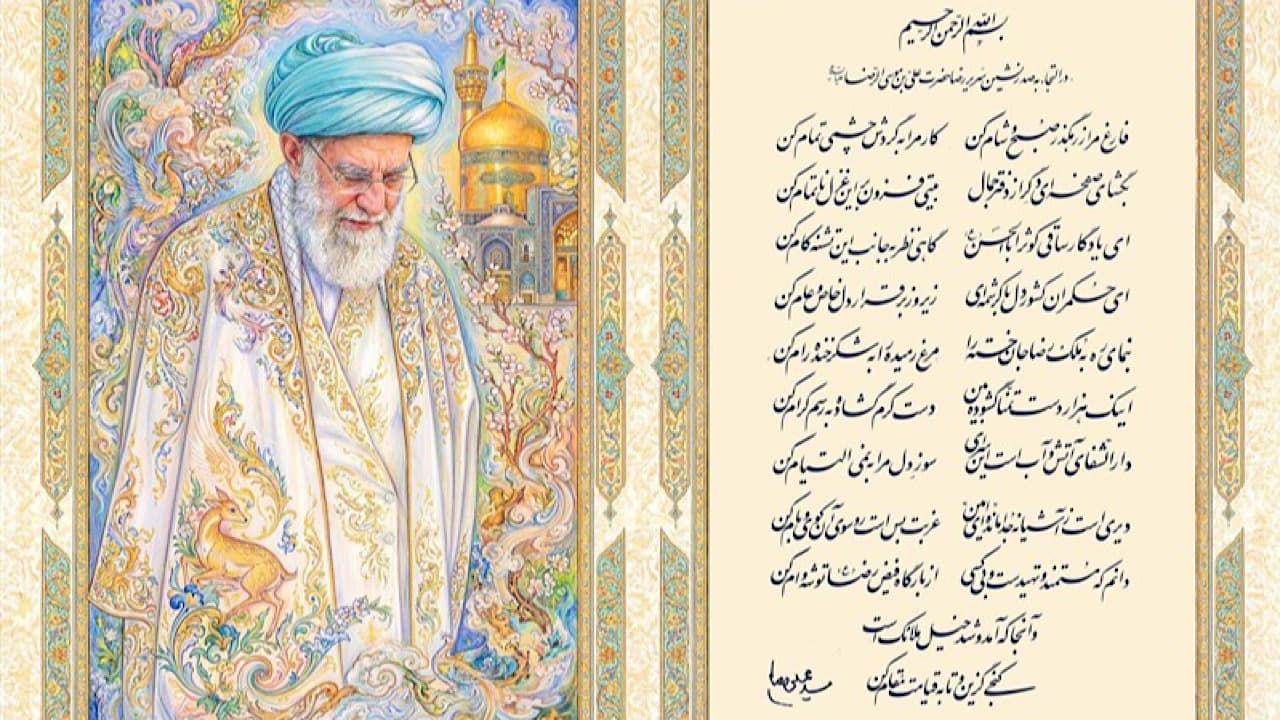 بسم الله الرحمن الرحیم
در التجاء به صدرنشین سریر رضا حضرت علی بن موسی الرضا
فارغ مرا ز رهگذر صبح و شام کن کار مرا به گردش چشمی تمام کن
بگشای صفحه‌ای دگر از دفتر جمال بیتی فزون بر این غزل ناتمام کن
ای یادگار ساقی کوثر اباالحسن (ع) گاهی نظر به جانب این تشنه کام کن
ای حکمران کشور دل ها کرشمه‌ای زیر و زبر قرار دل خاص و عام کن
بنمای ره به ملک رضا جان خسته را مرغ رمیده را به شکرخنده رام کن
اینک هزار دست تمنا گشوده بین دست کرم گشاد و به رسم کرام کن
دارالشفای آتش و آب است این سرای سوز دل مرا به نمی التیام کن
دیری است ز آشیانه جدا مانده‌ای امین غربت بس است رو سوی آن کوی و بام کن
دانم که مستمند و تهیدست و بی کسی از بارگاه فیض رضا (ع) توشه وام کن
وآنجا که آمد و شد خیل ملائک است
کنجی گزین و تا به قیامت مقام کن
سید علی